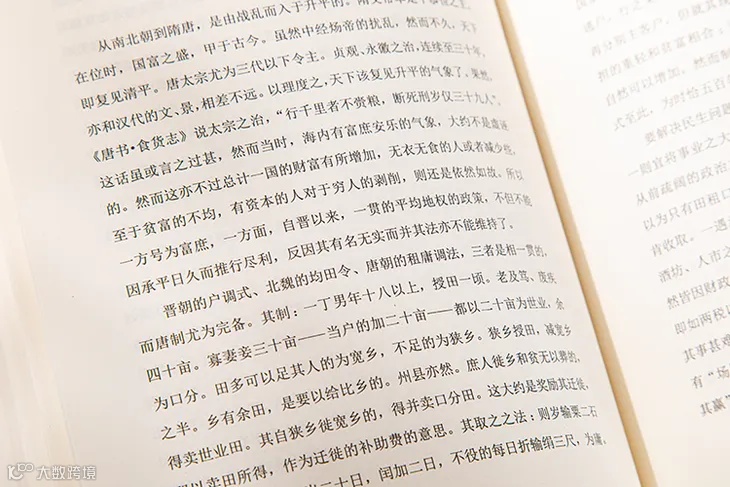 从南北朝到隋唐，是由战乱而入于升平的。
在位时，国富之盛，甲于古今。虽然中经炀帝的扰乱，然而不久，天下
即复见清平。唐太宗尤为三代以下令主。贞观、永徽之治，连续至三十年，
亦和汉代的文、景，相差不远。以理度之，天下该复见升平的气象了。果然，
《唐书·食货志》说太宗之治，“行千里者不赍粮，断死刑岁仅三十九人”。
这话虽或言之过甚，然而当时，海内有富庶安乐的气象，大约不是虚诬
的。然而这亦不过总计一国的财富有所增加，无衣无食的人或者减少些，
至于贫富的不均，有资本的人对于穷人的剥削，则还是依然如故。所以
一方号为富庶，一方面，自晋以来，一贯的平均地权的政策，不但不能
因承平日久而推行尽利，反因其有名无实而并其法亦不能维持了。
晋朝的户调式、北魏的均田令、唐朝的租庸调法，三者是相一贯的，
而唐制尤为完备。其制：一丁男年十八以上，授田一顷。老及笃、废疾，
四十亩。寡妻妾三十亩——当户的加二十亩——都以二十亩为世业，余
为口分。田多可以足其人的为宽乡，不足的为狭乡。狭乡授田，减宽乡
之半。乡有余田，是要以给比乡的。州县亦然。庶人徙乡和贫无以葬的，
得卖世业田。其自狭乡徙宽乡的，得并卖口分田。这大约是奖励其迁徙，
以卖田所得，作为迁徙的补助费的意思。其取之之法：则岁输粟二石
二十日，闰加二日，不役的每日折输绢三尺，为庸，
再分别主客户，但就其现
担的重轻和贫富相合；
自然可以增加。然而制
式至此，为时给五百
要解决民生问题
一则宜将事业之大
从前疏阔的政治
以为只有田租口
肯收取。一遇
酒坊、人市之
然皆因财政
即如两税以
其事甚难
有“场
其赢”
大数跨境